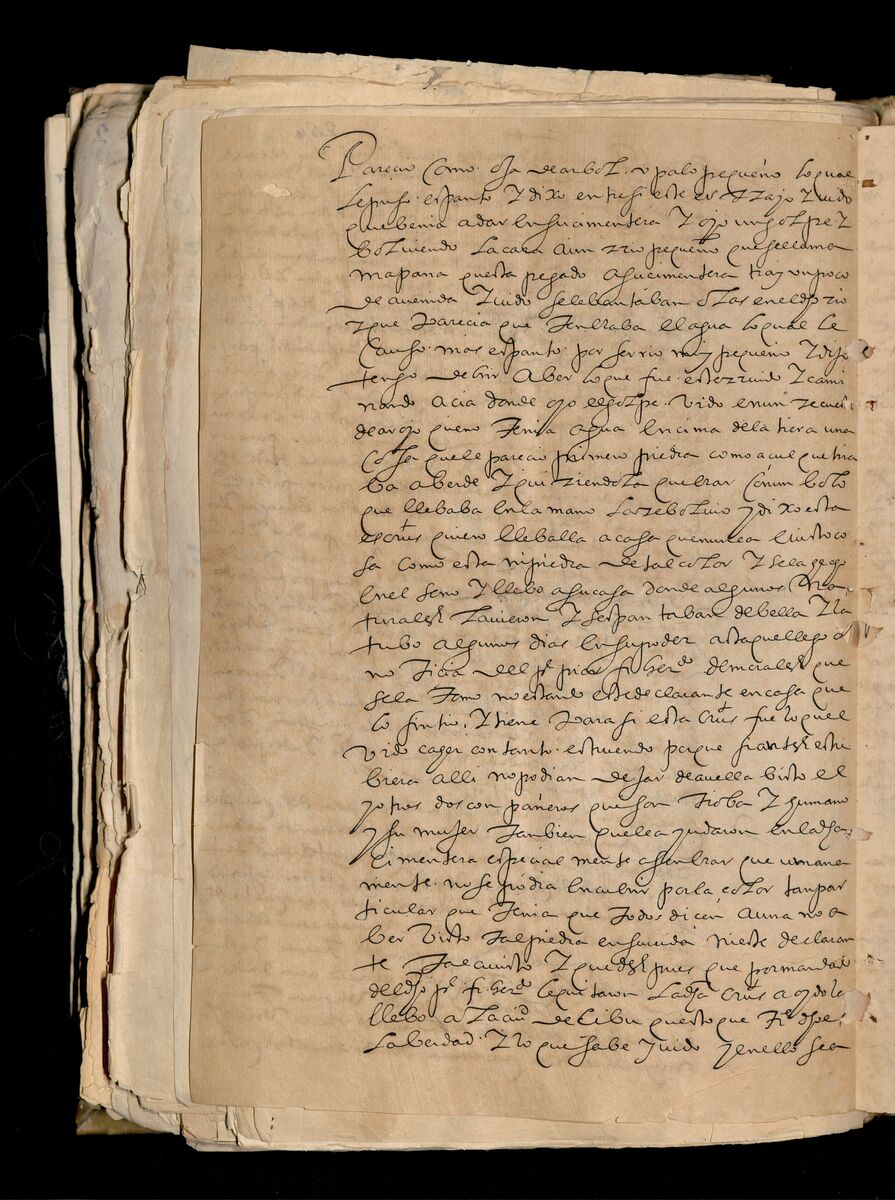 Parecio como oja de arbol. o palo pequeño lo qual
le puso espanto y dixo entresi este es rrayo y vido
que benia a dar en su cimentera y oyo un golpe y
bolviendo la cara a un rrio pequeño que se llama
mapana questa pegado a su cimentera tray un poco
de avenida y vido se lebantaban olas en el dho rio
y que parecia que tenblaba el agua lo qual le
Causo mas espanto por ser rio muy pequeño y dijo
tengo de yr a ber lo que fue este rruido y cami
nando acia donde oyo el golpe. vido en un
de aroyo que no tenia agua encima de la tiera una
cosa que le parecio primero piedra como açul que tira
ba a berde y quiriendola quebrar con un bolo
que llebaba en la mano la rebolvio y dixo esta
es crus quiero lleballa a casa que nunca e visto co
sa como esta ni piedra de tal color y se la
en el seno y llebo a su casa donde algunos na
turales la vieron y sespantaban de bella y la
tubo algunos dias en su poder asta que llego a
noticia del pe prior fr herdo de morales que
se la tomo no estando este declarante en casa que
lo sintio. y tiene para si esta crus fue lo quel
vido cayer con tanto estruendo porque si antes estu
biera alli no podian dejar de avella bisto el
y otros dos conpañeros que son tioba y humano
y su muger tanbien que le ayudaron en la dha
cimentera especialmente a senbrar que umana
mente no se podia encubrir por la color tan par
ticular que tenia que todos dicen a una no a
ber visto tal piedra en su vida ni este declaran
te tal a visto y que despues que por mandado
del dho pe fr herdo le quitaron la dha crus a oydo la
llebo a la ciud de Cibu questo que tiene dho es
la berdad y lo que sabe y vido y en ello sea